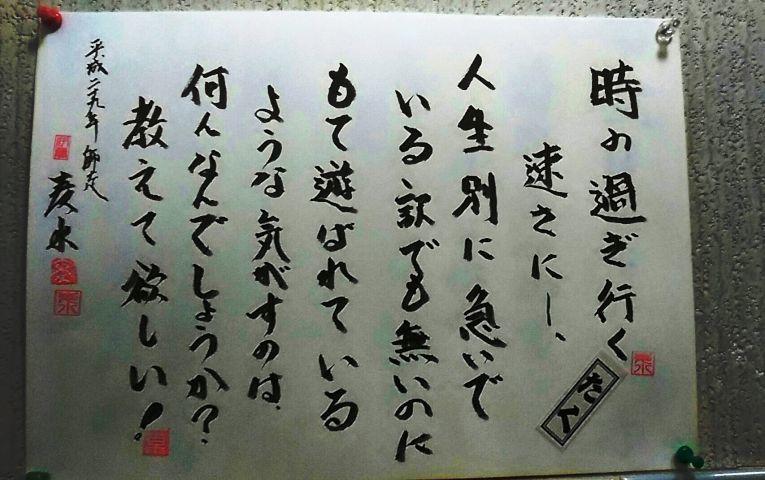 時の過ぎ行く
速さにし、
人生別に急いで
いる訳でも無いのに
もて遊ばれている
ような気がすのは、
何んなんでしょうか?
教えて欲しい!
平成二十九年 師走